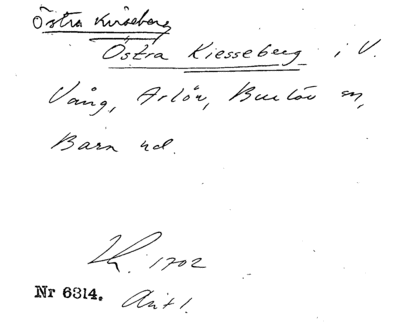 Östra Kirseberg
Östra Kiesseberg i V.
Vång, Arlöv, Burlöv sn,
Bara hd.
Lh. 1702
Nr 6314. Avit 1.